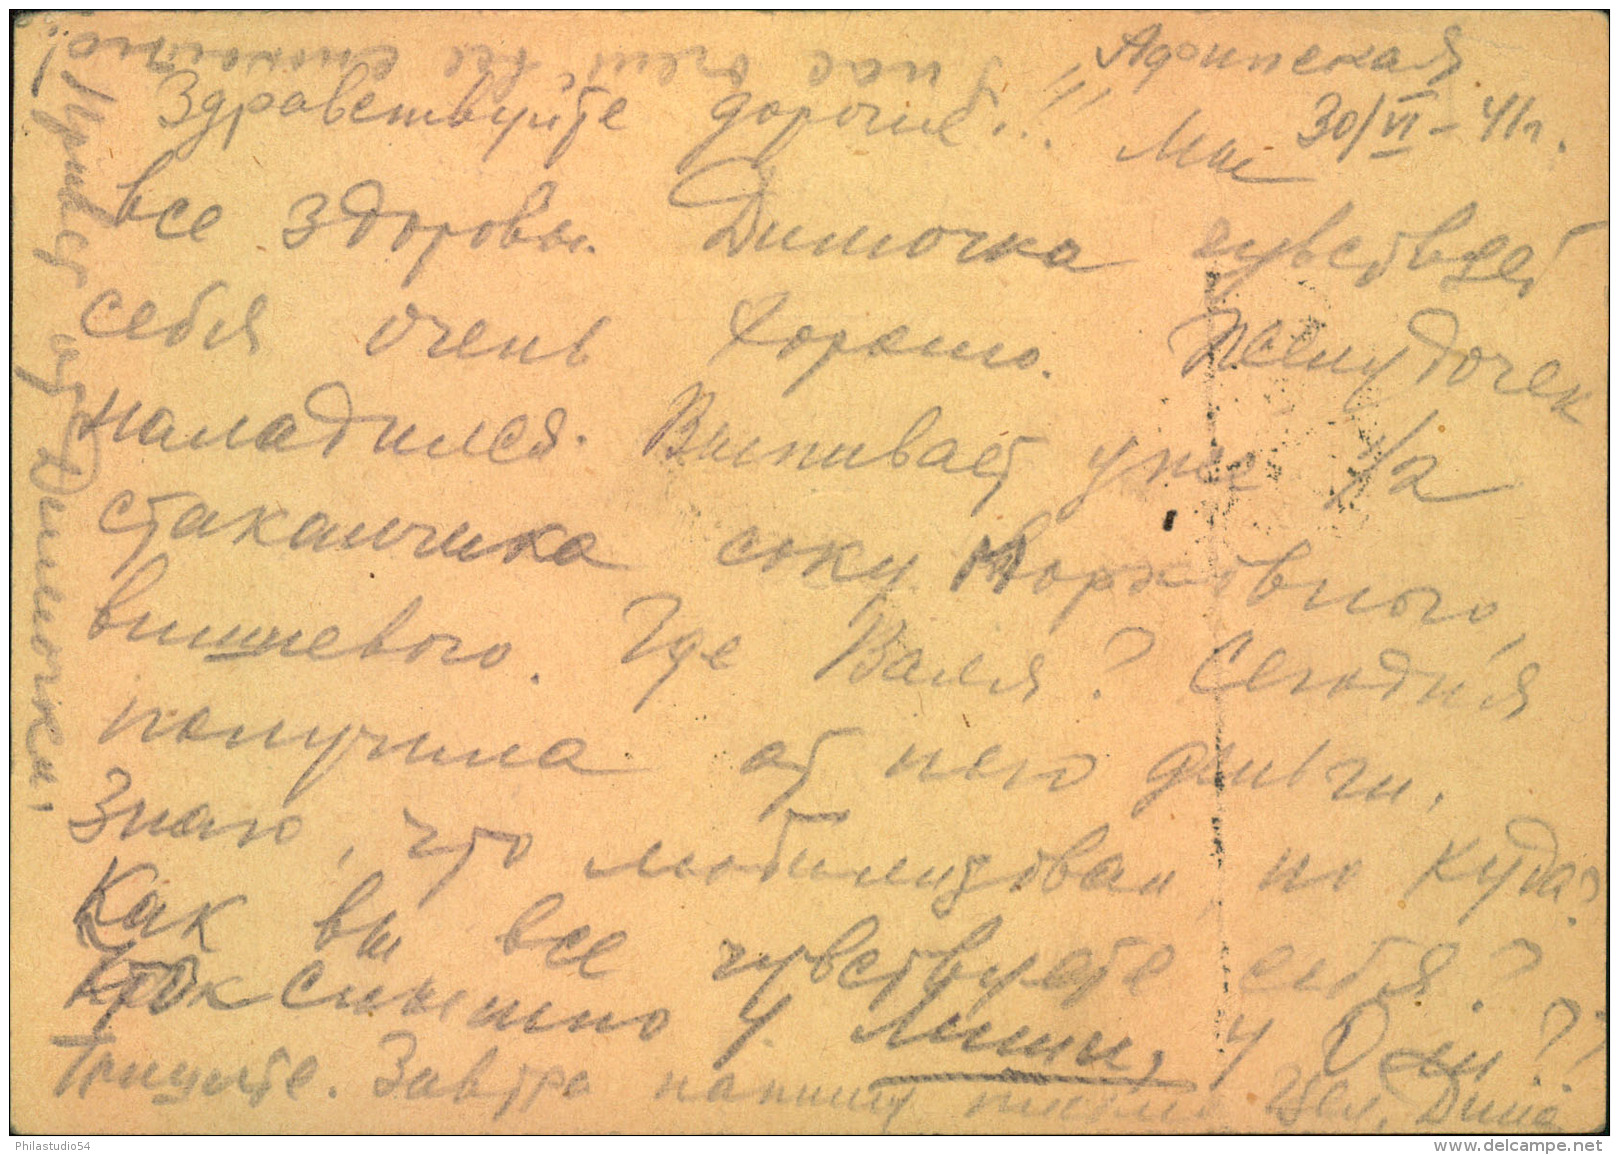 Афипская
30/VI – 41 г.
Здравствуйте дорогие!! Мы
все здоровы. Димочка чувствует
себя очень хорошо. Желудочек
наладился. Выпивает уже 1/2
стаканчика соку морковного,
вишневого. Где Валя? Сегодня
получила от него деньги.
Знаю, что мобилизован но куда?
Как вы все чувствуете себя?
что слышно у Люши, у Оли??
Пишите. Завтра напишу письмо Цел. Дина
У нас очень все спокойно!
Привет от Димочки,
Philastudio54
www.delcampe.net